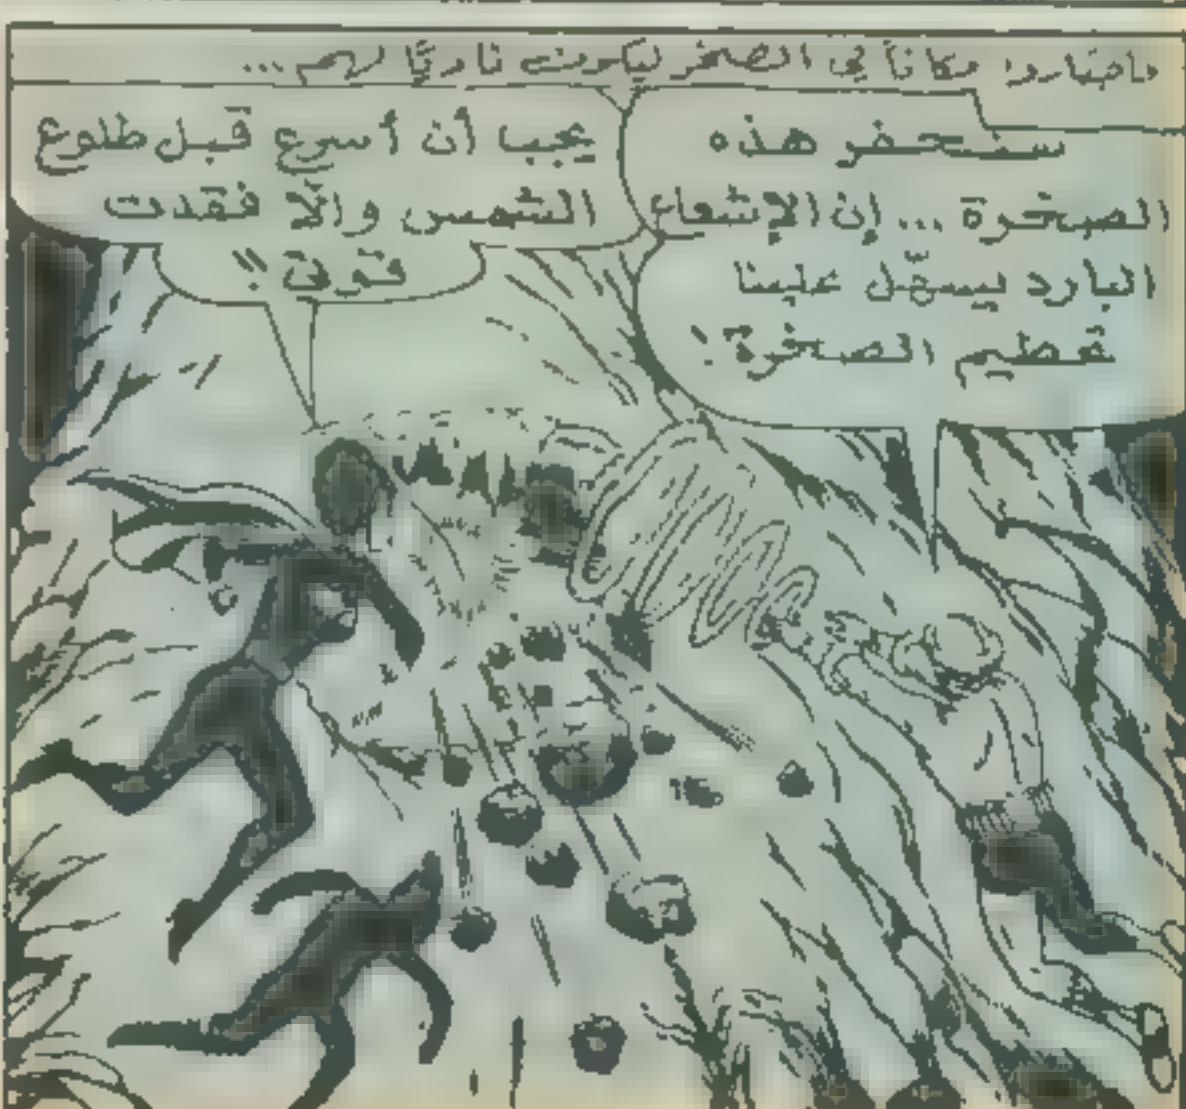 فاختاروا مكاناً في الصخر ليكون نادياً لهم ...
سنحفر هذه
الصخرة ... إن الإشعاع
البارد يسهّل علينا
تحطيم الصخرة !
يجب أن أسرع قبل طلوع
الشمس والّا فقدت
قوتي !!